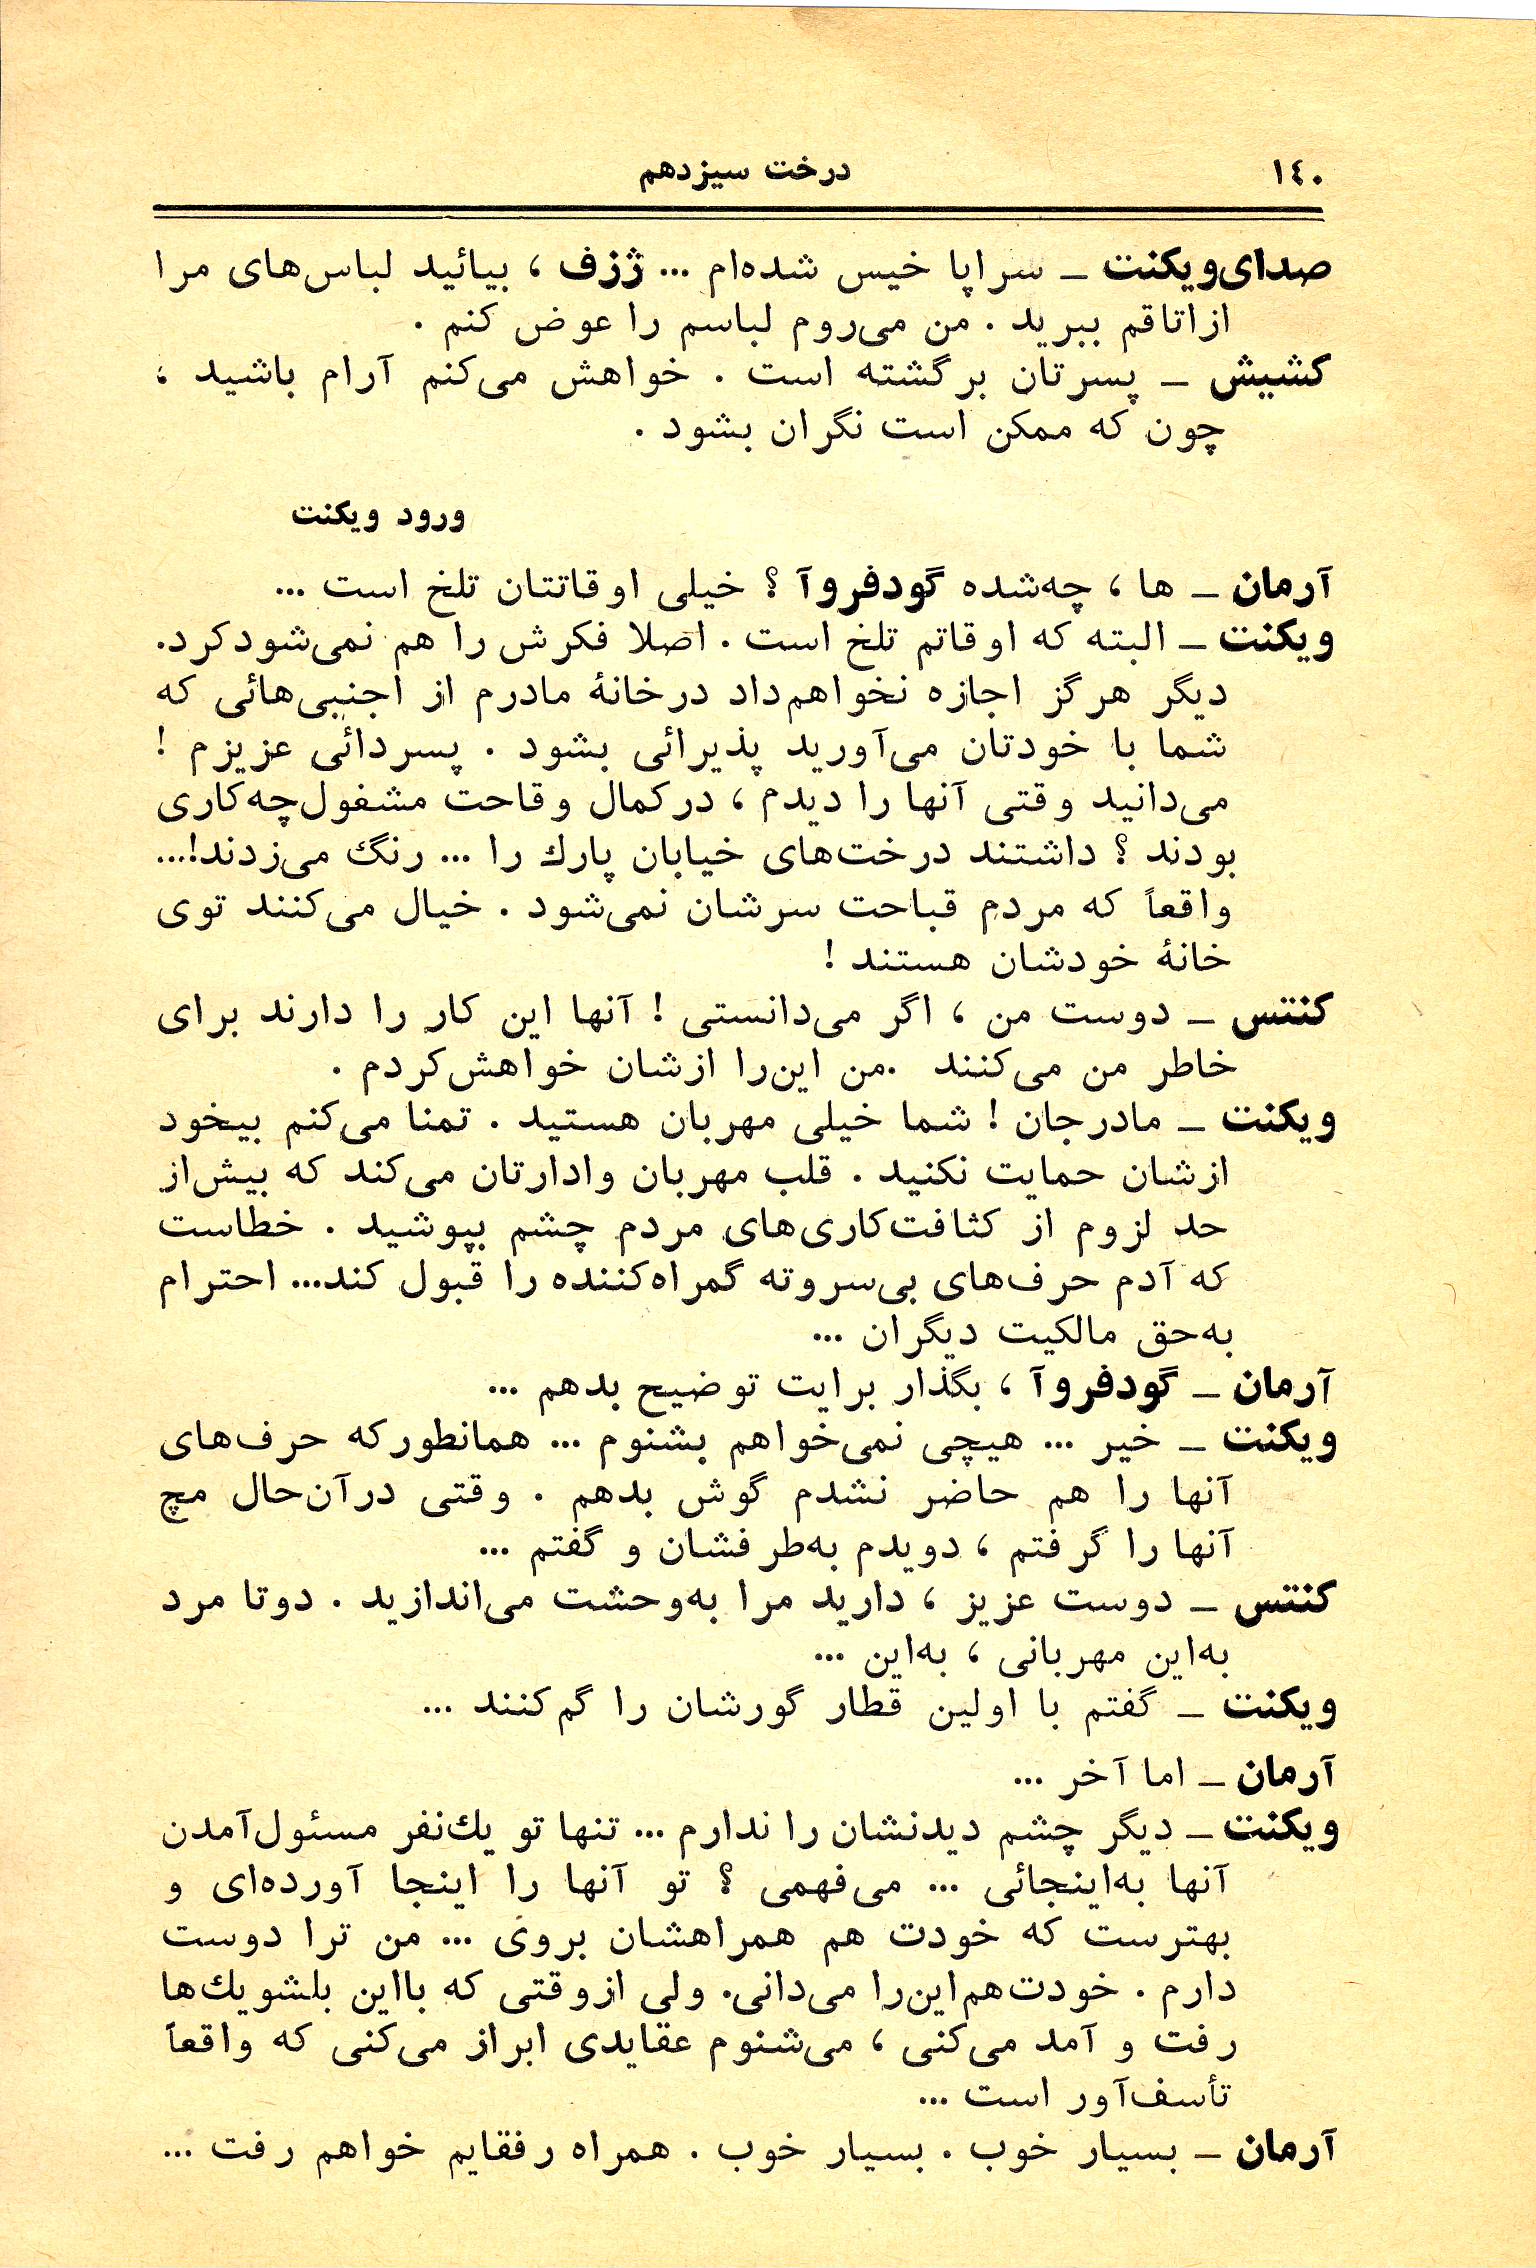 ١٤٠
درخت سیزدهم
صدای‌ویکنت ــ سراپا خیس شده‌ام ... ژزف ، بیائید لباس‌های مرا
ازاتاقم ببرید . من می‌روم لباسم را عوض کنم .
کشیش ــ پسرتان برگشته است . خواهش می‌کنم آرام باشید ،
چون که ممکن است نگران بشود .
ورود ویکنت
آرمان ــ ها ، چه‌شده گودفروآ ؟ خیلی اوقاتتان تلخ است ...
ویکنت ــ البته که اوقاتم تلخ است . اصلا فکرش را هم نمی‌شودکرد.
دیگر هرگز اجازه نخواهم‌داد درخانهٔ مادرم از اجنبی‌هائی که
شما با خودتان می‌آورید پذیرائی بشود . پسردائی عزیزم !
می‌دانید وقتی آنها را دیدم ، درکمال وقاحت مشغول‌چه‌کاری
بودند ؟ داشتند درخت‌های خیابان پارك را ... رنگ می‌زدند!...
واقعاً که مردم قباحت سرشان نمی‌شود . خیال می‌کنند توی
خانهٔ خودشان هستند !
کنتس ــ دوست من ، اگر می‌دانستی ! آنها این کار را دارند برای
خاطر من می‌کنند .من این‌را ازشان خواهش‌کردم .
ویکنت ــ مادرجان ! شما خیلی مهربان هستید . تمنا می‌کنم بیخود
ازشان حمایت نکنید . قلب مهربان وادارتان می‌کند که بیش‌از
حد لزوم از کثافت‌کاری‌های مردم چشم بپوشید . خطاست
که آدم حرف‌های بی‌سروته گمراه‌کننده را قبول کند... احترام
به‌حق مالکیت دیگران ...
آرمان ــ گودفروآ ، بگذار برایت توضیح بدهم ...
ویکنت ــ خیر ... هیچی نمی‌خواهم بشنوم ... همانطورکه حرف‌های
آنها را هم حاضر نشدم گوش بدهم . وقتی درآن‌حال مچ
آنها را گرفتم ، دویدم به‌طرفشان و گفتم ...
کنتس ــ دوست عزیز ، دارید مرا به‌وحشت می‌اندازید . دوتا مرد
به‌این مهربانی ، به‌این ...
ویکنت ــ گفتم با اولین قطار گورشان را گم‌کنند ...
آرمان ــ اما آخر ...
ویکنت ــ دیگر چشم دیدنشان را ندارم ... تنها تو یك‌نفر مسئول‌آمدن
آنها به‌اینجائی ... می‌فهمی ؟ تو آنها را اینجا آورده‌ای و
بهترست که خودت هم همراهشان بروی ... من ترا دوست
دارم . خودت‌هم‌این‌را می‌دانی. ولی ازوقتی که بااین بلشویك‌ها
رفت و آمد می‌کنی ، می‌شنوم عقایدی ابراز می‌کنی که واقعاً
تأسف‌آور است ...
آرمان ــ بسیار خوب . بسیار خوب . همراه رفقایم خواهم رفت ...